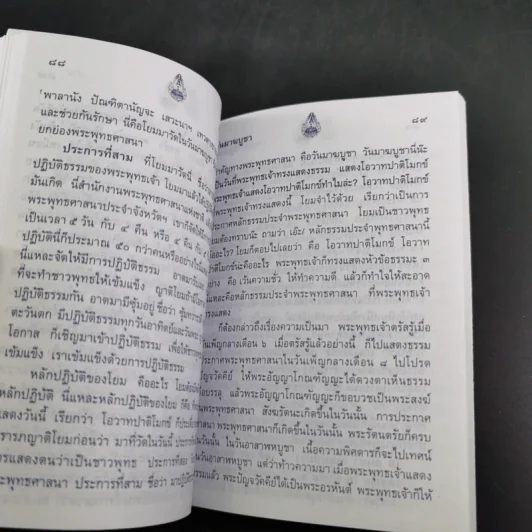 ๘๘
"พาลานัง ปัณฑิตานัญจะ เสวะนา"
และช่วยกันรักษา นี่คือโยมมาวัดในวันมาฆบูชา
ยกย่องพระพุทธศาสนา
ประการที่สาม ที่โยมมาวัดนี่ ชื่อว่า
ปฏิบัติธรรมของพระพุทธเจ้า โยมมาแล้วได้
มันเกิด นี่สำนักงานพระพุทธศาสนาแห่งชาติ
พระพุทธศาสนาประจำจังหวัดฯ เขาก็จัดให้
เป็นเวลา ๕ วัน กับ ๔ คืน หรือ ๔ คืน กับ ๕
ปฏิบัตินี่ก็ประมาณ ๕๐ กว่าคนหรืออย่าง
นี่แหละจัดให้มีการปฏิบัติธรรม อาตมา
ที่จะทำชาวพุทธให้เข้มแข็ง ญาติโยมก็
ปฏิบัติธรรมกัน อาตมามีซุ้มอยู่ ชื่อว่า ซุ้ม
ตะวันตก มีปฏิบัติธรรมทุกวันอาทิตย์และวัน
โอกาส ก็เชิญมาเข้าปฏิบัติธรรม เพื่อให้ชาวพุทธ
เข้มแข็ง เราเข้มแข็งด้วยการปฏิบัติธรรม
หลักปฏิบัติของโยม คืออะไร โยมต้อง
หลักปฏิบัติ นี่แหละหลักปฏิบัติของโยม ก็คือ
แสดงวันนี้ เรียกว่า โอวาทปาติโมกข์
ญาติโยมก่อนว่า มาที่วัดในวันนี้
แสดงตนว่าเป็นชาวพุทธ ประการที่สอง
พระพุทธศาสนา ประการที่สาม ชื่อว่า มาปฏิบัติธรรม
๘๙
วันมาฆบูชา
สำคัญทางพระพุทธศาสนา คือวันมาฆบูชา วันมาฆบูชานี่น๊ะ
เป็นวันที่พระพุทธเจ้าทรงแสดงธรรม แสดงโอวาทปาติโมกข์
พระพุทธเจ้าแสดงโอวาทปาติโมกข์ทำไมล่ะ? โอวาทปาติโมกข์
พระพุทธเจ้าทรงแสดงนี้ โยมจำไว้ด้วย เรียกว่าเป็นการ
ประกาศหลักธรรมประจำพระพุทธศาสนา โยมเป็นชาวพุทธ
ต้องทราบน๊ะ ถามว่า เอ๊ะ! หลักธรรมประจำพระพุทธศาสนานี้
คืออะไร? โยมก็ตอบไปเลยว่า คือ โอวาทปาติโมกข์ โอวาท
ปาติโมกข์น่ะคืออะไร พระพุทธเจ้าก็ทรงแสดงหัวข้อธรรมะ ๓
อย่าง คือ เว้นความชั่ว ให้ทำความดี แล้วก็ทำใจให้สะอาด
นี่แหละคือหลักธรรมประจำพระพุทธศาสนา ที่พระพุทธเจ้า
ทรงแสดง
ก็ต้องกล่าวถึงเรื่องความเป็นมา พระพุทธเจ้าตรัสรู้เมื่อ
วันเพ็ญกลางเดือน ๖ เมื่อตรัสรู้แล้วอย่างนี้ ก็ไปแสดงธรรม
ประกาศพระพุทธศาสนาในวันเพ็ญกลางเดือน ๘ ไปโปรด
ปัญจวัคคีย์ ให้พระอัญญาโกณฑัญญะได้ดวงตาเห็นธรรม
บรรลุ แล้วพระอัญญาโกณฑัญญะก็ขอบวชเป็นพระสงฆ์
สังฆรัตนะเกิดขึ้นในวันนั้น การประกาศ
พระพุทธศาสนาก็เกิดขึ้นในวันนั้น พระรัตนตรัยก็ครบ
ในวันนั้น ในวันอาสาฬหบูชา เนื้อความพิศดารก็จะไปเทศน์
วันอาสาฬหบูชา แต่ว่าท้าวความมา เมื่อพระพุทธเจ้าแสดง
แล้ว พระปัญจวัคคีย์ได้เป็นพระอรหันต์ พระพุทธเจ้าก็ให้